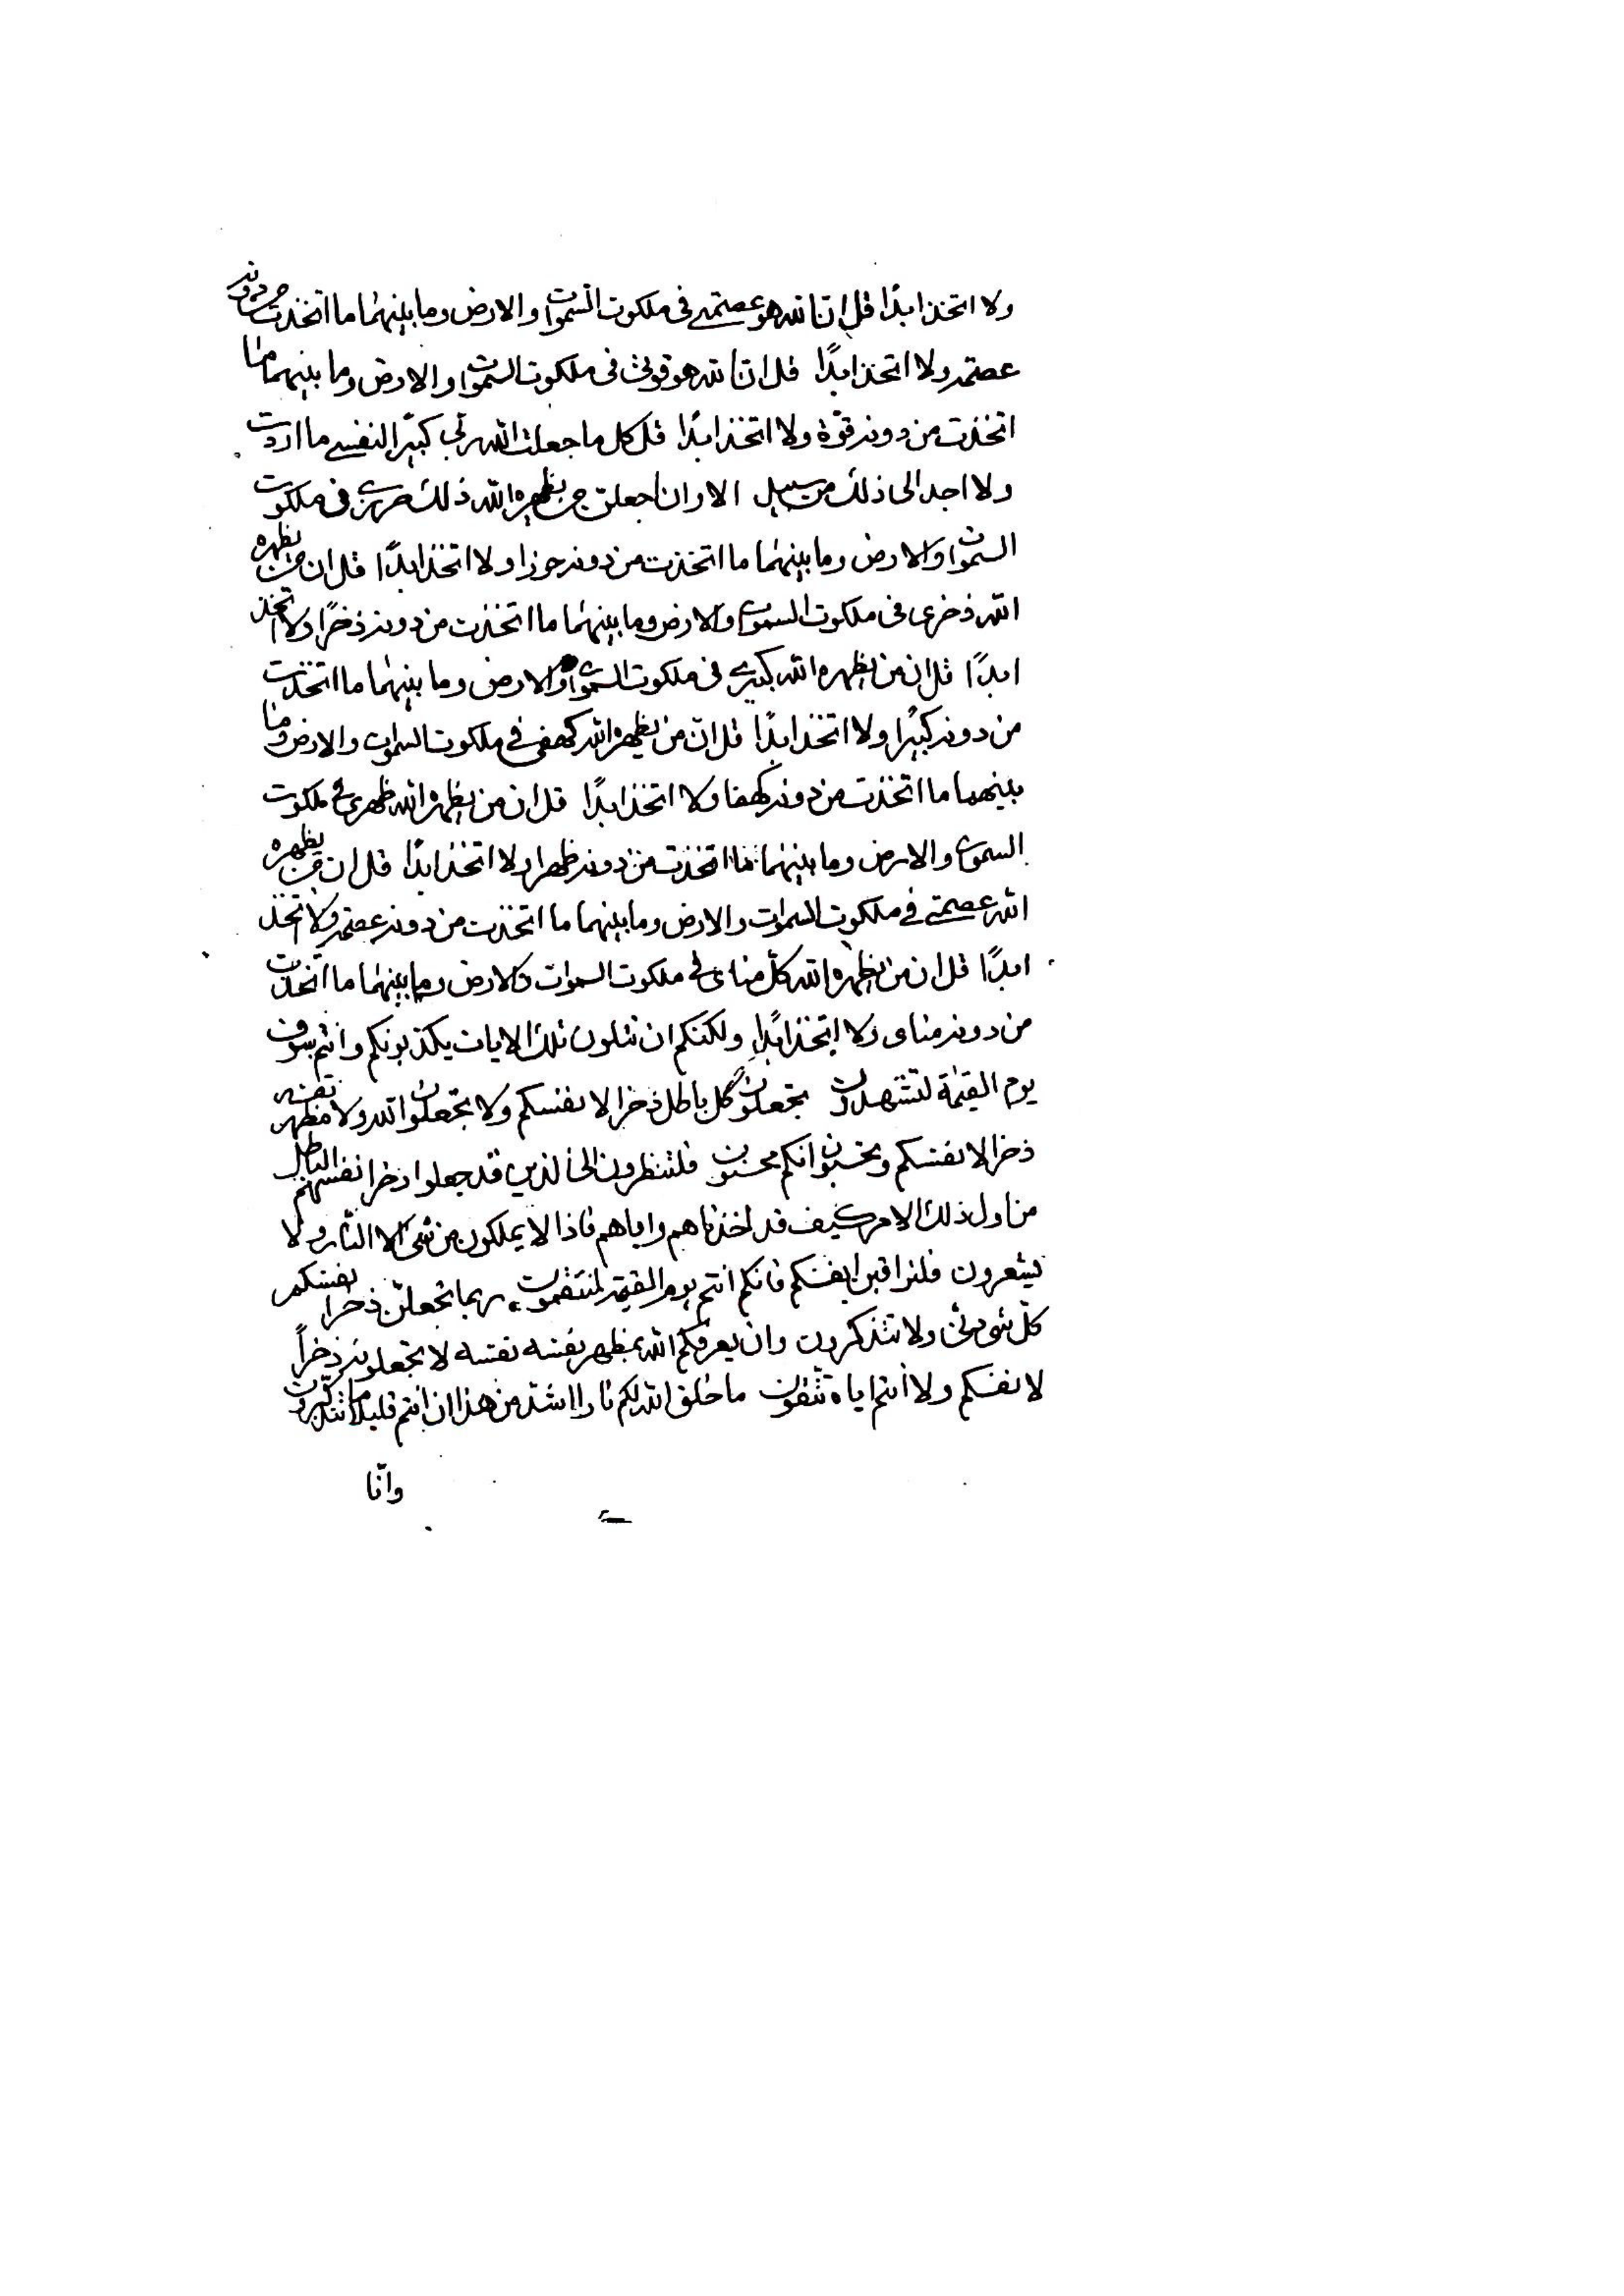 ولا اتخذ ابدًا قل ان الله هو عصمتي في ملكوت السموات والارض وما بينهما ما اتخذت من دونه
عصمة ولا اتخذ ابدًا قل ان الله هو قوتي في ملكوت السموات والارض وما بينهما ما
اتخذت من دونه قوة ولا اتخذ ابدًا قل كل ما جعلت الله ربي كبيرًا لنفسي ما اردت
ولا اجد الى ذلك من سبيل الا وان اجعلن من يظهره الله ذلك حرزي في ملكوت
السموات والارض وما بينهما ما اتخذت من دونه حرزا ولا اتخذ ابدًا قل ان من يظهره
الله ذخري في ملكوت السموات والارض وما بينهما ما اتخذت من دونه ذخرًا ولا اتخذ
ابدًا قل ان من يظهره الله كبيري في ملكوت السموات والارض وما بينهما ما اتخذت
من دونه كبيرًا ولا اتخذ ابدًا قل ان من يظهره الله كهفي في ملكوت السموات والارض وما
بينهما ما اتخذت من دونه كهفا ولا اتخذ ابدًا قل ان من يظهره الله ظهري في ملكوت
السموات والارض وما بينهما ما اتخذت من دونه ظهرا ولا اتخذ ابدًا قل ان من يظهره
الله عصمتي في ملكوت السموات والارض وما بينهما ما اتخذت من دونه عصمة ولا اتخذ
ابدًا قل ان من يظهره الله كل مناى في ملكوت السموات والارض وما بينهما ما اتخذت
من دونه مناى ولا اتخذ ابدًا ولكنكم ان تتلون تلك الايات يكذبونكم وانتم سوف
يوم القيمة لتشهدون تجعلون كل باطل ذخرا لانفسكم ولا تجعلون الله ولا مظهر نفسه
ذخرا لانفسكم وتحسبون انكم محسنون فلتنظرون الى الذين قد جعلوا ذخرا نفسهم الباطل
من اول ذلك الامر كيف قد اخذناهم واياهم فاذا لا يملكون من شئ الا النار ولا
يشعرون فلتراقبن انفسكم فانكم انتم يوم القيمة لمنتقمون ربما تجعلن ذخرا نفسكم
كل شئ ولا تتذكرون وان يعرفكم الله مظهر نفسه نفسه لا تجعلونه ذخراً
لانفسكم ولا انتم اياه تتقون ما خلق الله لكم نارا اشد من هذا ان انتم قليلا ما تتذكرون
وانا